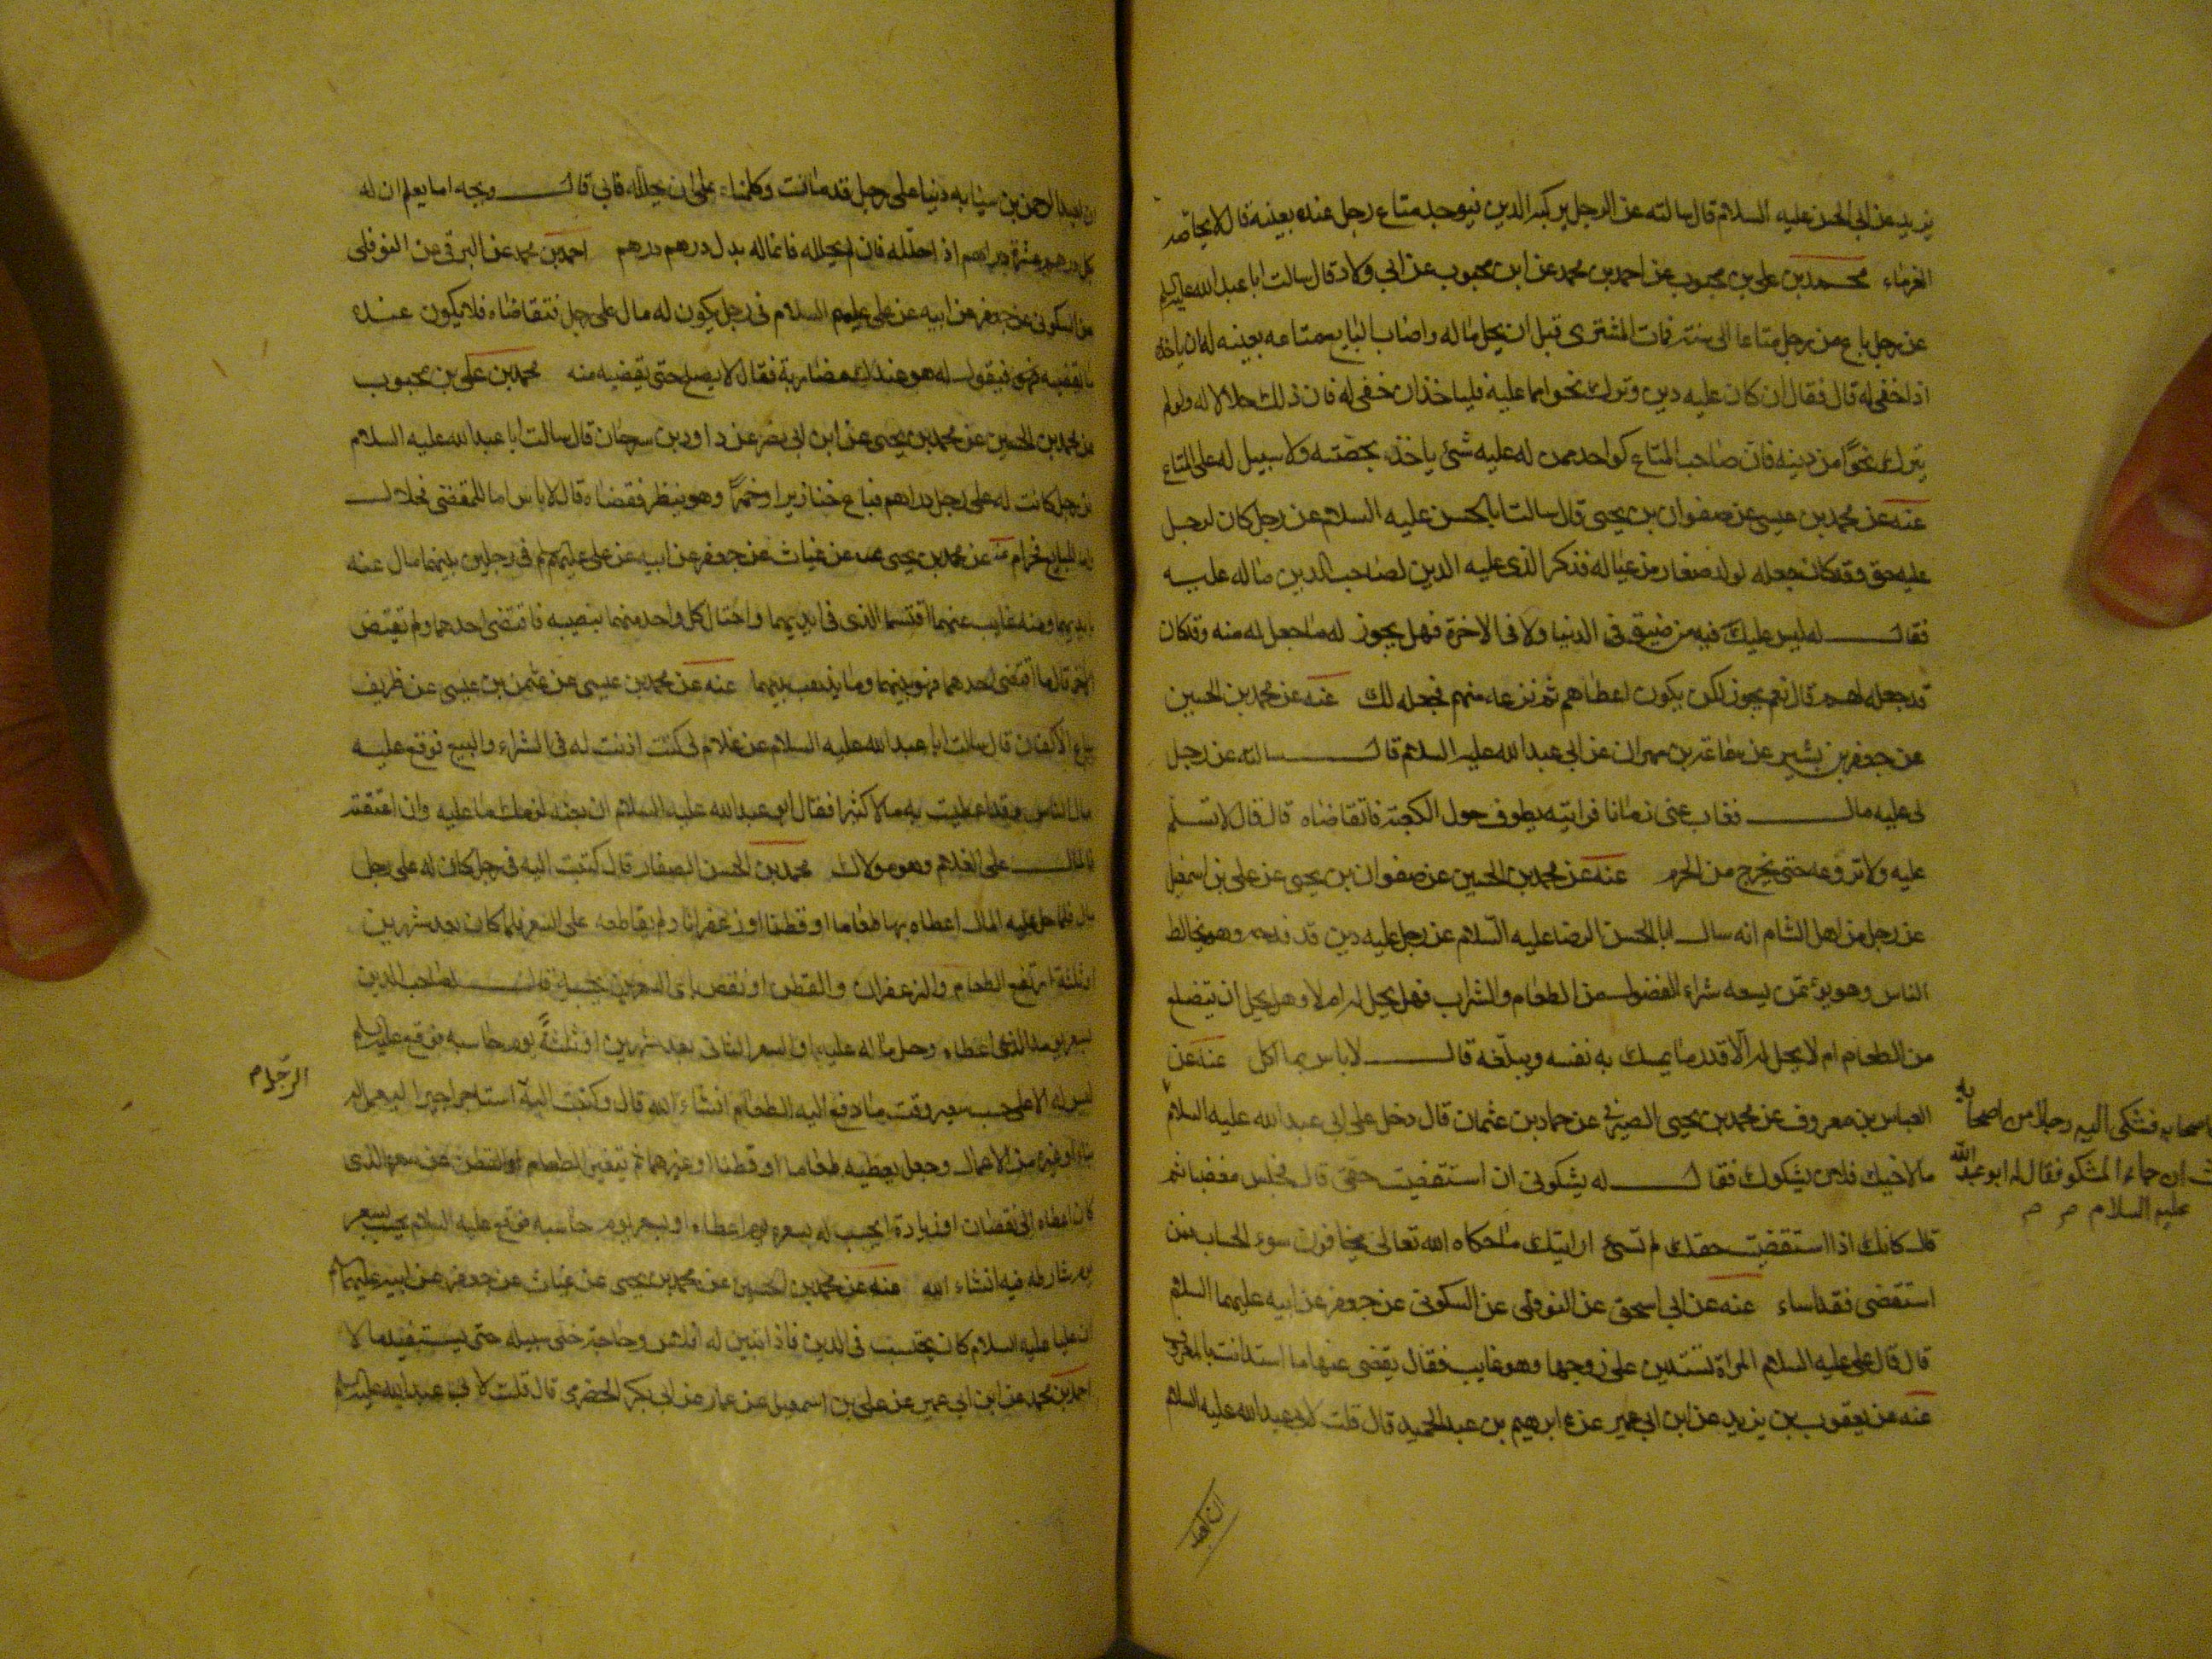 يزيد عن ابى الحسن عليه السلام قال سالته عن الرجل يركبه الدين فيوجد متاع رجل عنده بعينه قال لا يحاصه
الغرماء محمد بن على بن محبوب عن احمد بن محمد عن ابن محبوب عن ابى ولاد قال سالت ابا عبد الله عليه السلم
عن رجل باع من رجل متاعا الى سنة فمات المشترى قبل ان يحل ماله واصاب البايع متاعه بعينه له ان ياخذه
اذا خفى له قال فقال ان كان عليه دين وترك نحوا مما عليه فلياخذ ان خفى له فان ذلك حلالا له ولو لم
يترك نحوًا من دينه فان صاحب المتاع كواحد ممن له عليه شئ ياخذ بحصته ولا سبيل له على المتاع
عنه عن محمد بن عيسى عن صفوان بن يحيى قال سالت ابا الحسن عليه السلام عن رجل كان لرجل
عليه حق وقد كان جعله لولد صغار من عياله فذكر الذى عليه الدين لصاحب الدين ماله عليه
فقال له ليس عليك فيه من ضيق فى الدنيا ولا فى الاخرة فهل يجوز له ما جعل له منه وقد كان
قد جعله لهم قال نعم يجوز لكن يكون اعطاهم ثم نزعه منهم فجعله لك عنه عن محمد بن الحسين
عن جعفر بن بشير عن سماعة بن مهران عن ابى عبد الله عليه السلام قال سالته عن رجل
لى عليه مال فغاب عنى زمانا فرايته يطوف حول الكعبة فاتقاضاه قال قال لا تسلم
عليه ولا تروعه حتى يخرج من الحرم عنه عن محمد بن الحسين عن صفوان بن يحيى عن على بن اسمعيل
عن رجل من اهل الشام انه سال ابا الحسن الرضا عليه السلام عن رجل عليه دين قد فدحه وهو يخالط
الناس وهو يؤتمن يسعه شراء الفضول من الطعام والشراب فهل يحل له ام لا وهل يحل ان يتضلع
من الطعام ام لا يحل له الا قدر ما يمسك به نفسه ويبلغه قال لا باس بما اكل عنه عن
العباس بن معروف عن محمد بن يحيى الصيرفى عن حماد بن عثمان قال دخل على ابى عبد الله عليه السلام
رجل من اصحابه فشكى اليه رجلا من اصحابه
ان جاء المشكو فقال له ابو عبد الله
عليه السلام
ما لاخيك فلان يشكوك فقال له يشكونى ان استقضيت حقى قال فجلس مغضبا ثم
قال كانك اذا استقضيت حقك لم تسئ ارايتك ما حكاه الله تعالى يخافون سوء الحساب فمن
استقضى فقد اساء عنه عن ابى اسحق عن النوفلى عن السكونى عن جعفر عن ابيه عليهما السلام
قال قال على عليه السلام المراة تستدين على زوجها وهو غايب فقال يقضى عنها ما استدانت بالمعروف
عنه عن يعقوب بن يزيد عن ابن ابى عمير عن ابرهيم بن عبد الحميد قال قلت لابى عبد الله عليه السلام
ان لعبد
ان لعبد الرحمن بن سيابه دينا على رجل قد مات وكلمناه على ان يحلله فابى قال ويحه اما يعلم ان له
بكل درهم عشرة دراهم اذ احلله فان لم يحلله فانما له بدل درهم درهم احمد بن محمد عن البرقى عن النوفلى
عن السكونى عن جعفر عن ابيه عن على عليهم السلام فى رجل يكون له مال على رجل فتقاضاه فلا يكون عنده
ما يقضيه فيقول له هو عندك مضاربة فقال لا يصلح حتى يقضيه منه محمد بن على بن محبوب
عن محمد بن الحسين عن محمد بن يحيى عن ابن ابى نصر عن داود بن سرحان قال سالت ابا عبد الله عليه السلام
عن رجل كانت له على رجل دراهم فباع خنازيرا وخمرًا وهو ينظر فقضاه قال لا باس اما للمقضى فحلال
واما للبايع فحرام عنه عن محمد بن يحيى عن غياث عن جعفر عن ابيه عن على عليهم السلم فى رجلين بينهما مال منه
بايديهما ومنه غايب عنهما اقتسما الذى فى ايديهما واحتال كل واحد منهما بنصيبه فاقتضى احدهما ولم يقتض
الاخر قال ما اقتضى احدهما فهو بينهما وما يذهب بينهما عنه عن محمد بن عيسى عن عثمن بن عيسى عن ظريف
بياع الاكفان قال سالت ابا عبد الله عليه السلام عن غلام لى كنت اذنت له فى الشراء والبيع فوقع عليه
مال الناس وقد اعطيت به مالا كثيرا فقال ابو عبد الله عليه السلام ان بعته لزمك ما عليه وان اعتقته
فالمال على الغلام وهو مولاك محمد بن الحسن الصفار قال كتبت اليه فى رجل كان له على رجل
مال فلما حل عليه المال اعطاه بها طعاما او قطنا او زعفرانا ولم يقاطعه على السعر فلما كان بعد شهرين
او ثلثة ارتفع الطعام والزعفران والقطن او نقص باى السعرين يحسبه قال لصاحب الدين
بسعر يومه الذى اعطاه وحل ماله عليه او السعر الثانى بعد شهرين او ثلثةً يوم حاسبه فوقع عليه السلم
ليس له الا على حسب سعر وقت ما دفع اليه الطعام انشاء الله قال وكتبت اليه استاجر اجيرا ليعمل له
الرجل م
بناء او غيره من الاعمال وجعل يعطيه طعاما او قطنا او غيرهما ثم يتغير الطعام او القطن عن سعره الذى
كان اعطاه الى نقصان او زيادة ايحسب له بسعره يوم اعطاه او بسعر يوم حاسبه فوقع عليه السلام يحسب بسعر
يوم شارطه فيه انشاء الله عنه عن محمد بن الحسين عن محمد بن يحيى عن غياث عن جعفر عن ابيه عليهما السلم
ان عليا عليه السلام كان يحبس فى الدين فاذا تبين له افلاس وحاجة خلى سبيله حتى يستفيد مالا
احمد بن محمد عن ابن ابى عمير عن على بن اسمعيل عن عمار عن ابى بكر الحضرمى قال قلت لابى عبد الله عليه السلم